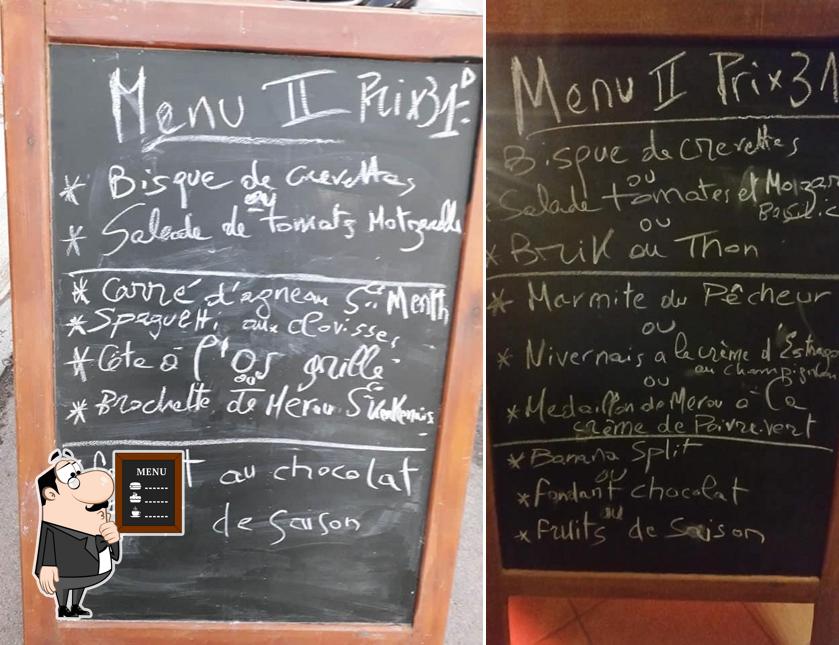 Menu II Prix 31.D
* Bisque de Crevettes
ou
* Salade de tomats Motzarelle
* Carré d'agneau Sce Menth
* Spaguetti aux clovisses
* Côte à l'Os grillé
ou
* Brochette de Merou Sce
t au chocolat
de saison
MENU
Menu II Prix 31
Bisque de crevettes
ou
Salade tomates et Mozzar
Basilic
ou
* Brik au Thon
* Marmite du Pêcheur
ou
* Nivernais a la crème d'Estrago
au champignon
ou
* Medaillon de Merou à La
crème de Poivre vert
* Banana Split
ou
* fondant chocolat
ou
* fruits de Saison